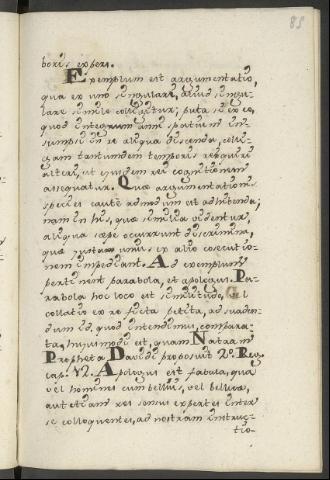 85
boris expers.
Exemplum est argumentatio,
qua ex uno singulari, aliud singu-
lare simile colligitur; puta si ex eo,
quod integrum anni spatium in-
sumpsi in re aliqua discenda, colli-
gam tantumdem temporis requiri
alteri, ut ejusdem rei cognitionem
assequatur. Quae argumentationis
species caute admodum est adhibenda;
nam in his, quae similia videntur,
aliqua saepe occurrunt discrimina,
quae justam unius ex alio consecutio-
nem impediant. Ad exemplum
pertinent parabola, et apologus. Pa-
rabola hoc loco est similitudo,
collatio ex re ficta petita, ad suaden-
dum id, quod intendimus, comparata-
ta, hujusmodi est, quam Natam
Propheta Davidi proposuit 2º. Reg.
cap. 12. Apologus est fabula, qua
vel homines cum belluis, vel belluae,
aut etiam res sensus expertes inter
se colloquentes, ad nostram instruc-
tio-